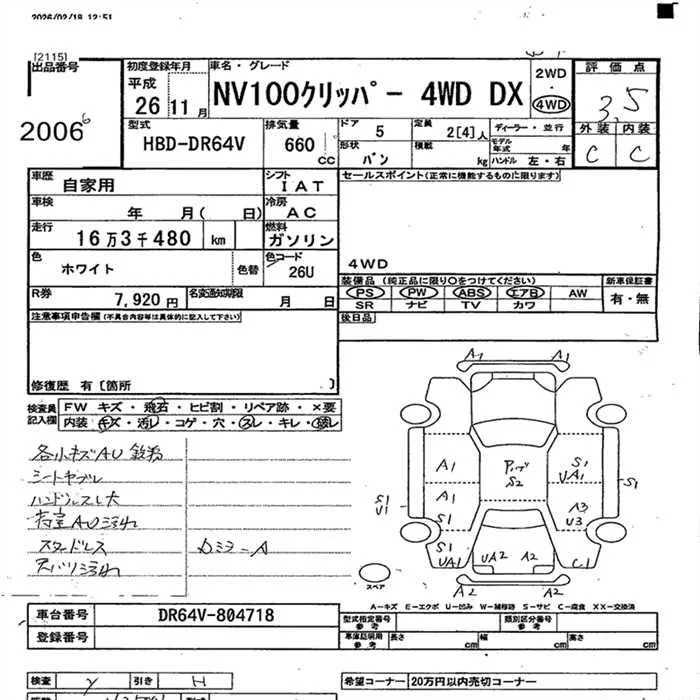 2026/02/18 12:51
[2115]
出品番号
2006 6
初度登録年月
平成
26 11 月
車名・グレード
NV100クリッパー 4WD DX
2WD
4WD
評価点
3.5
外装 内装
C C
型式
HBD-DR64V
排気量
660 CC
ドア 5
形状 バン
定員 2[4]人
積載 kg
ディーラー・並行
モデル年式 年
ハンドル 左・右
車歴
自家用
シフト
IAT
セールスポイント(正常に機能するものに限ります)
4WD
車検
年 月( 日)
冷房
AC
走行
16万3千480 km
燃料
ガソリン
色
ホワイト
色替
色コード
26U
R券
7,920円
名変通知期限
月 日
装備品(純正品に限り○をつけてください)
PS PW ABS エアB AW
SR ナビ TV カワ
新車保証書
有・無
後日品
注意事項申告欄(不具合内容等は具体的に記入して下さい)
修復歴 有〔箇所 〕
検査員記入欄
FW キズ・飛石・ヒビ割・リペア跡・×要
内装・キズ・汚レ・コゲ・穴・スレ・キレ・破レ
各小キズAU
シートヤブレ
ハンドルスレ大
スタッドレス
A1 A1
A1
A1
S1
S1
UA1
S1
U1
S2
S1
UA1
A3
U3
C1
S1
UA2 A2
A2 A2
スペア
A―キズ E―エクボ U―凹み W―補修跡 S―サビ C―腐食 XX―交換済
車台番号
DR64V-804718
登録番号
型式指定番号
参考
類別区分番号
参考
車庫証明用
参考
長さ cm 幅 cm 高さ cm
検査
引き
H
希望コーナー
20万円以内売切コーナー